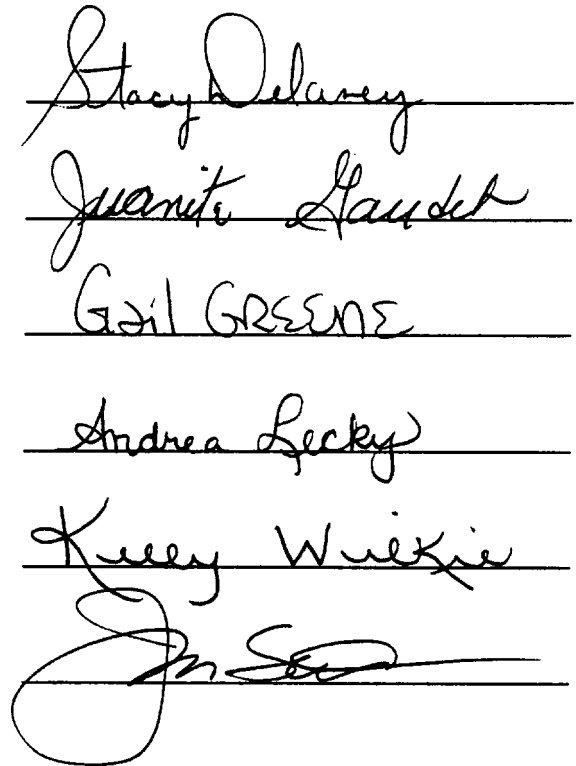 Stacy Delaney
Juanita Gaudet
Gail GREENE
Andrea Lecky
Kelly Wilkie